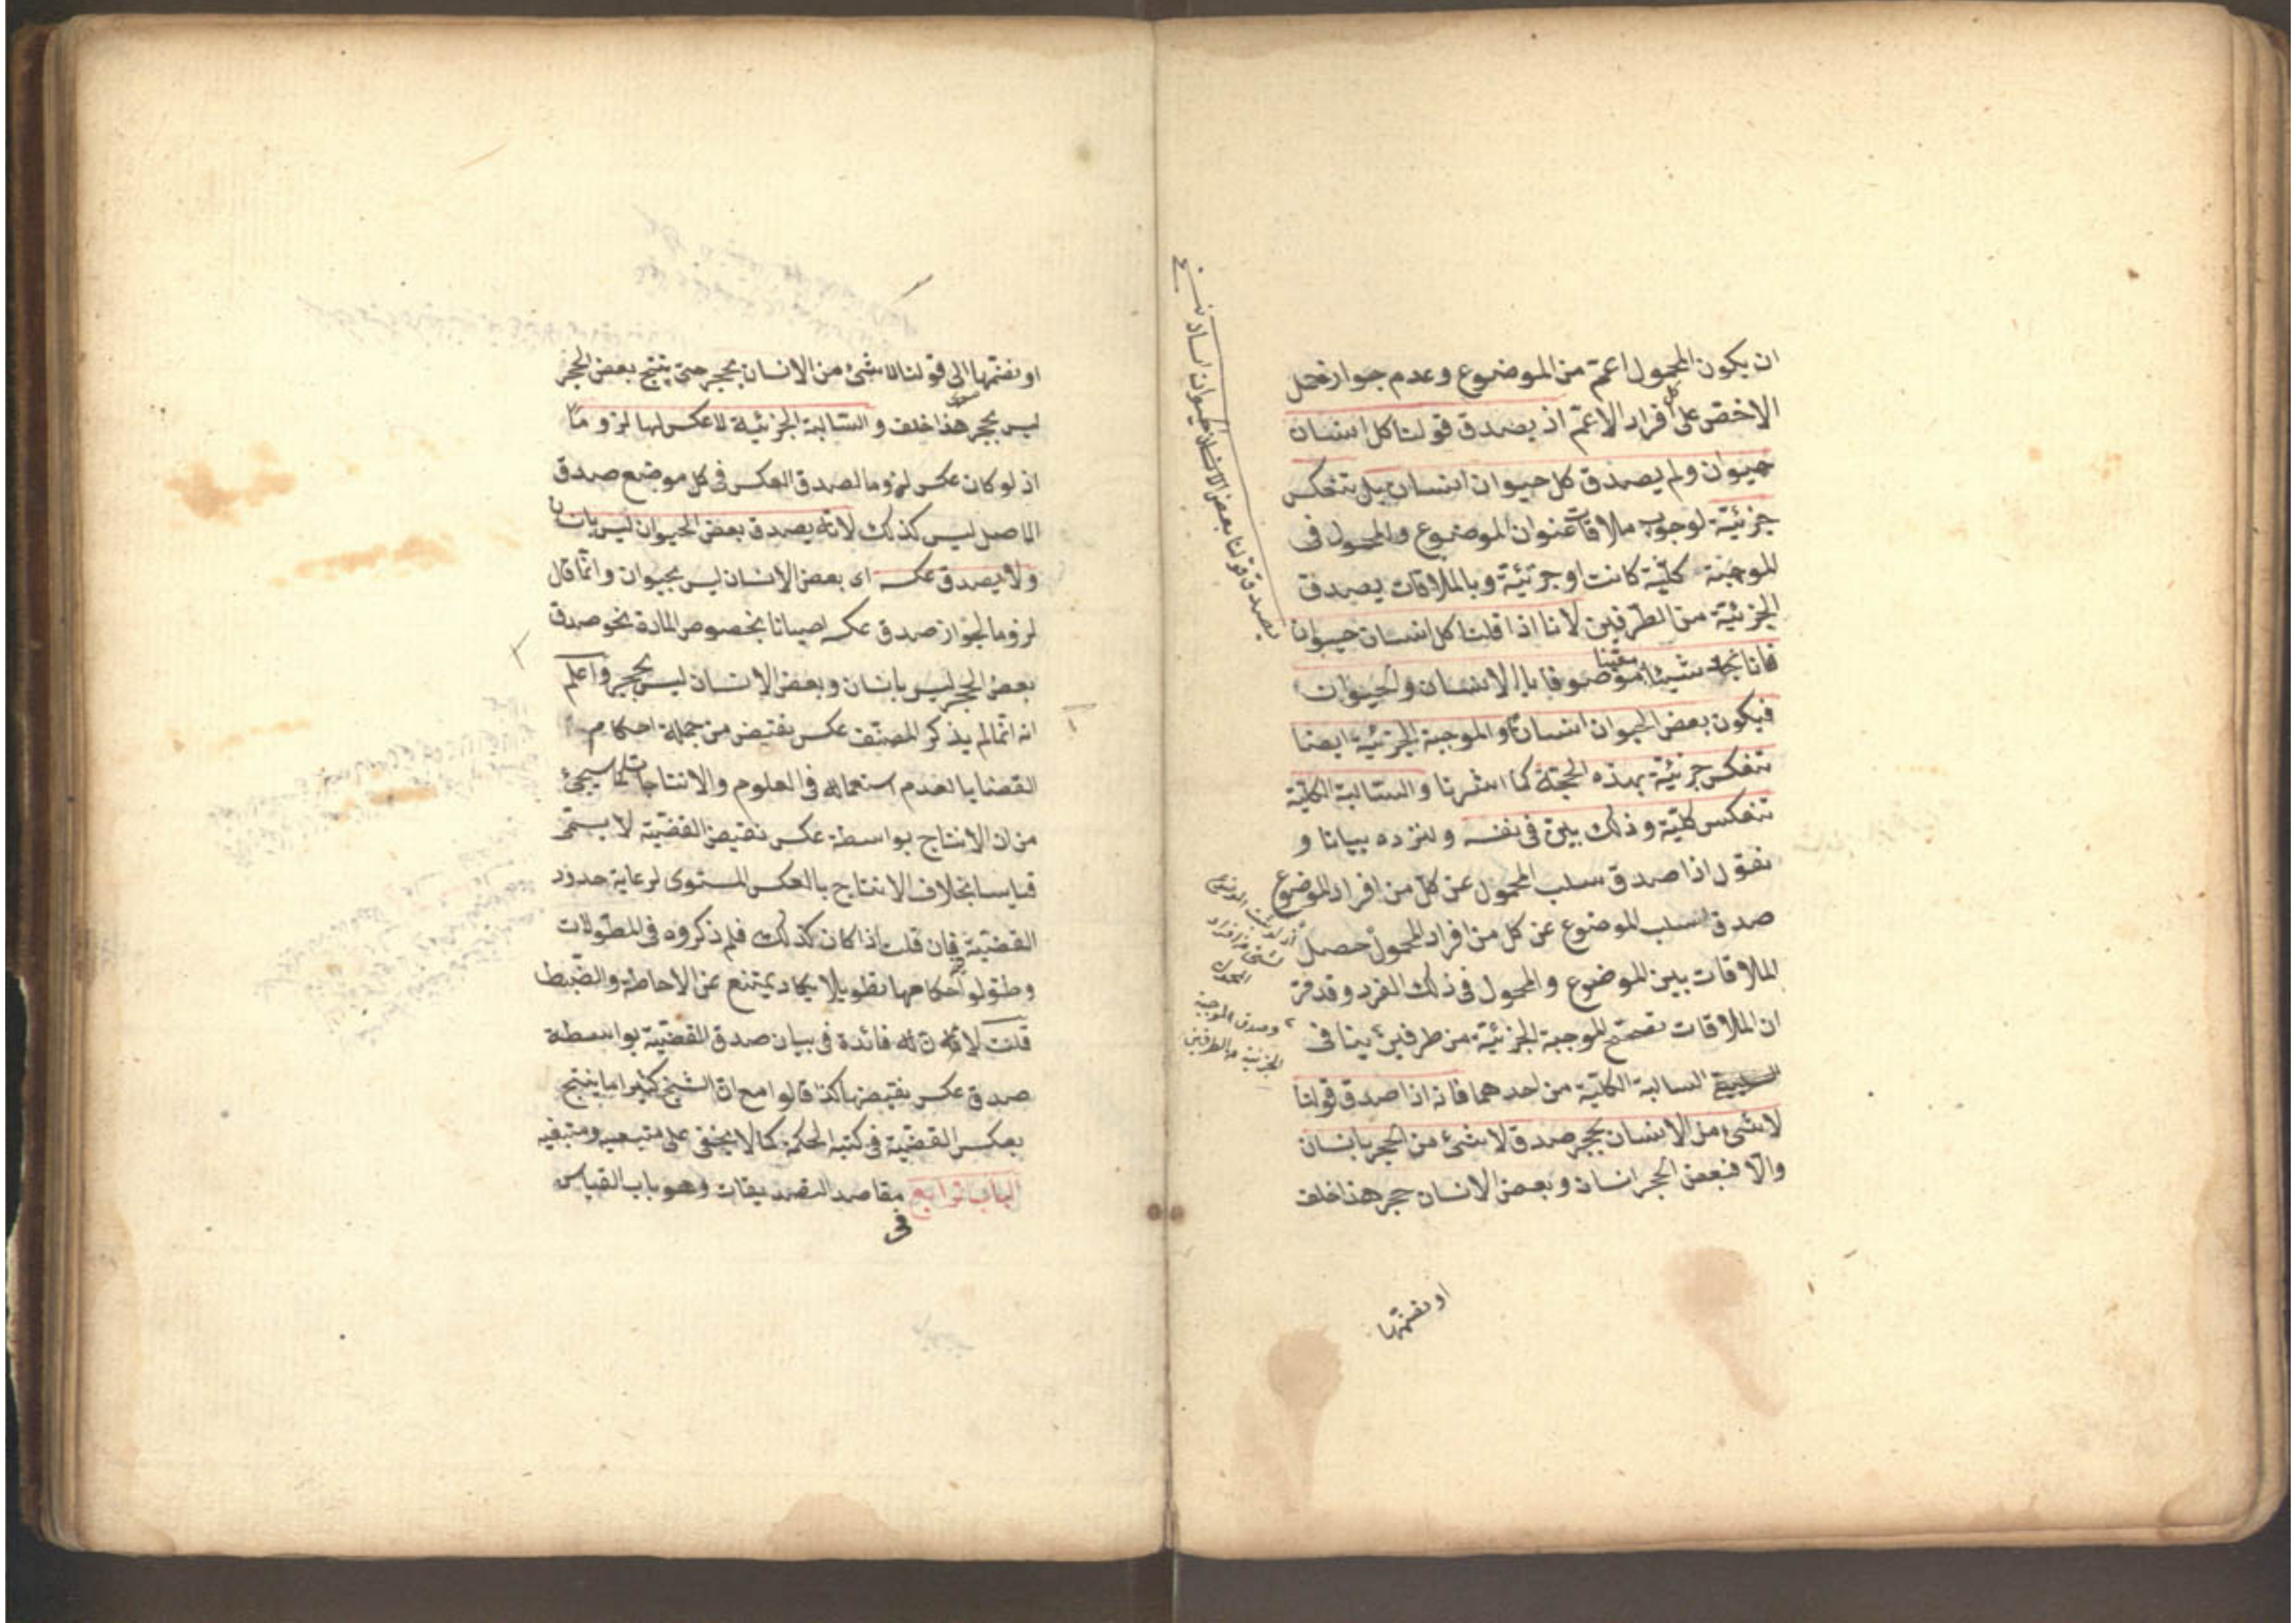 ان يكون المحمول اعمّ من الموضوع وعدم جواز حمل
الاخصّ على كل افراد الاعمّ اذ يصدق قولنا كل انسان
حيوان ولم يصدق كل حيوان انسان بل تنعكس
جزئيّة لوجوب ملاقات عنوان الموضوع والمحمول فى
الموجبة كليّة كانت او جزئيّة وبالملاقات يصدق
الجزئيّة من الطرفين لانا اذا قلنا كل انسان حيوان
فانا نجد شيئا معيّنا موصوفا بالانسان والحيوان
فيكون بعض الحيوان انسانا والموجبة الجزئيّة ايضا
تنعكس جزئيّة بهذه الحجّة كما اشرنا والسالبة الكليّة
تنعكس كليّة وذلك بيّن فى نفسه ولنزده بيانا و
نقول اذا صدق سلب المحمول عن كلّ من افراد الموضوع
صدق سلب الموضوع عن كل من افراد المحمول حصل
الملاقات بين الموضوع والمحمول فى ذلك الفرد وقد مرّ
ان الملاقات تصحّح الموجبة الجزئيّة من طرفين ينافى
السالبة الكليّة من احدهما فانه اذا صدق قولنا
لا شئ من الانسان بحجر صدق لا شئ من الحجر بانسان
والّا فبعض الحجر انسان وبعض الانسان حجر هذا خلف
او نضمّها
يصدق قولنا بعض الانسان حيوان
اذ لو
شئ من افراد
المحمول
وصدق الموجبة
الجزئية من الطرفين
او نضمّها الى قولنا لا شئ من الانسان بحجر حتى ينتج بعض الحجر
ليس بحجر هذا خلف والسالبة الجزئيّة لا عكس لها لزوما
اذ لو كان عكس لزوما لصدق العكس فى كل موضع صدق
الاصل ليس كذلك لانه يصدق بعض الحيوان ليس بانسان
ولا يصدق عكسه اى بعض الانسان ليس بحيوان وانّما قال
لزوما لجواز صدق عكسه احيانا بخصوص المادة نحو صدق
بعض الحجر ليس بانسان وبعض الانسان ليس بحجر واعلم
انه انّما لم يذكر المصنّف عكس نقيض من جملة احكام
القضايا لعدم استعماله فى العلوم والانتاجات لما سيجئ
من ان الانتاج بواسطة عكس نقيض القضيّة لا يسمّى
قياسا بخلاف الانتاج بالعكس المستوى لرعاية حدود
القضيّة فان قلت اذا كان كذلك فلم ذكروه فى المطوّلات
وطوّلوا احكامها تطويلا يكاد يمتنع عن الاحاطة والضبط
قلت لانه له فائدة فى بيان صدق القضيّة بواسطة
صدق عكس نقيضها كذا قالوا مع انّ الشيخ كثيرا ما ينتج
بعكس القضيّة فى كتبه الحكمة كما لا يخفى على متبعيه ومتبغيه
الباب الرابع فى مقاصد التصديقات وهو باب القياس